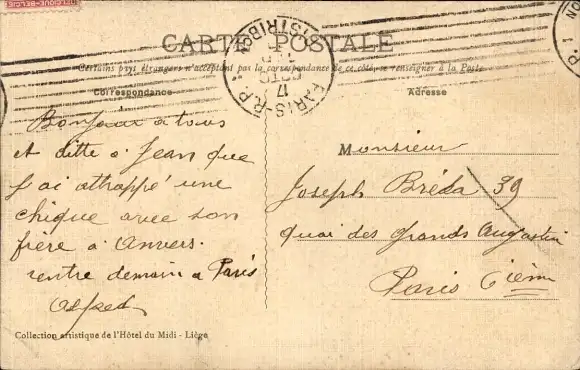 CARTE POSTALE
Certains pays étrangers n'acceptant pas la correspondance de ce côté, se renseigner à la Poste
Correspondance
Adresse
PARIS-R.P.
DISTRIBON
17
Bonjour a tous
et ditte a Jean que
j ai attrappé une
chique avec son
frère a Anvers.
rentre demain a Paris
Alfred
Collection artistique de l'Hôtel du Midi - Liège
Monsieur
Joseph Bréda 39
quai des grands Augustin
Paris 6ièm